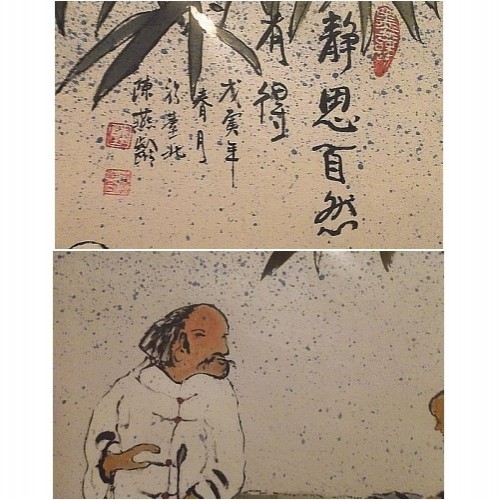 靜思自然
有得
戊寅年
春月
於臺北
陳燕齡